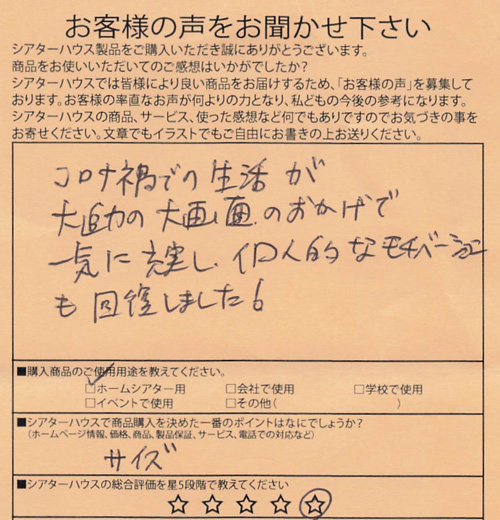 お客様の声をお聞かせ下さい
シアターハウス製品をご購入いただき誠にありがとうございます。
商品をお使いいただいてのご感想はいかがでしたか?
シアターハウスでは皆様により良い商品をお届けするため、「お客様の声」を募集して
おります。お客様の率直なお声が何よりの力となり、私どもの今後の参考になります。
シアターハウスの商品、サービス、使った感想など何でもありですのでお気づきの事を
お寄せください。文章でもイラストでもご自由にお書きの上お送りください。
コロナ禍での生活が
大迫力の大画面のおかげで
一気に充実し、個人的なモチベーション
も回復しました!
■購入商品のご使用用途を教えてください。
□ホームシアター用 □会社で使用 □学校で使用
□イベントで使用 □その他( )
■シアターハウスで商品購入を決めた一番のポイントはなにでしょうか?
(ホームページ情報、価格、商品、製品保証、サービス、電話での対応など)
サイズ
■シアターハウスの総合評価を星5段階で教えてください
☆☆☆☆☆